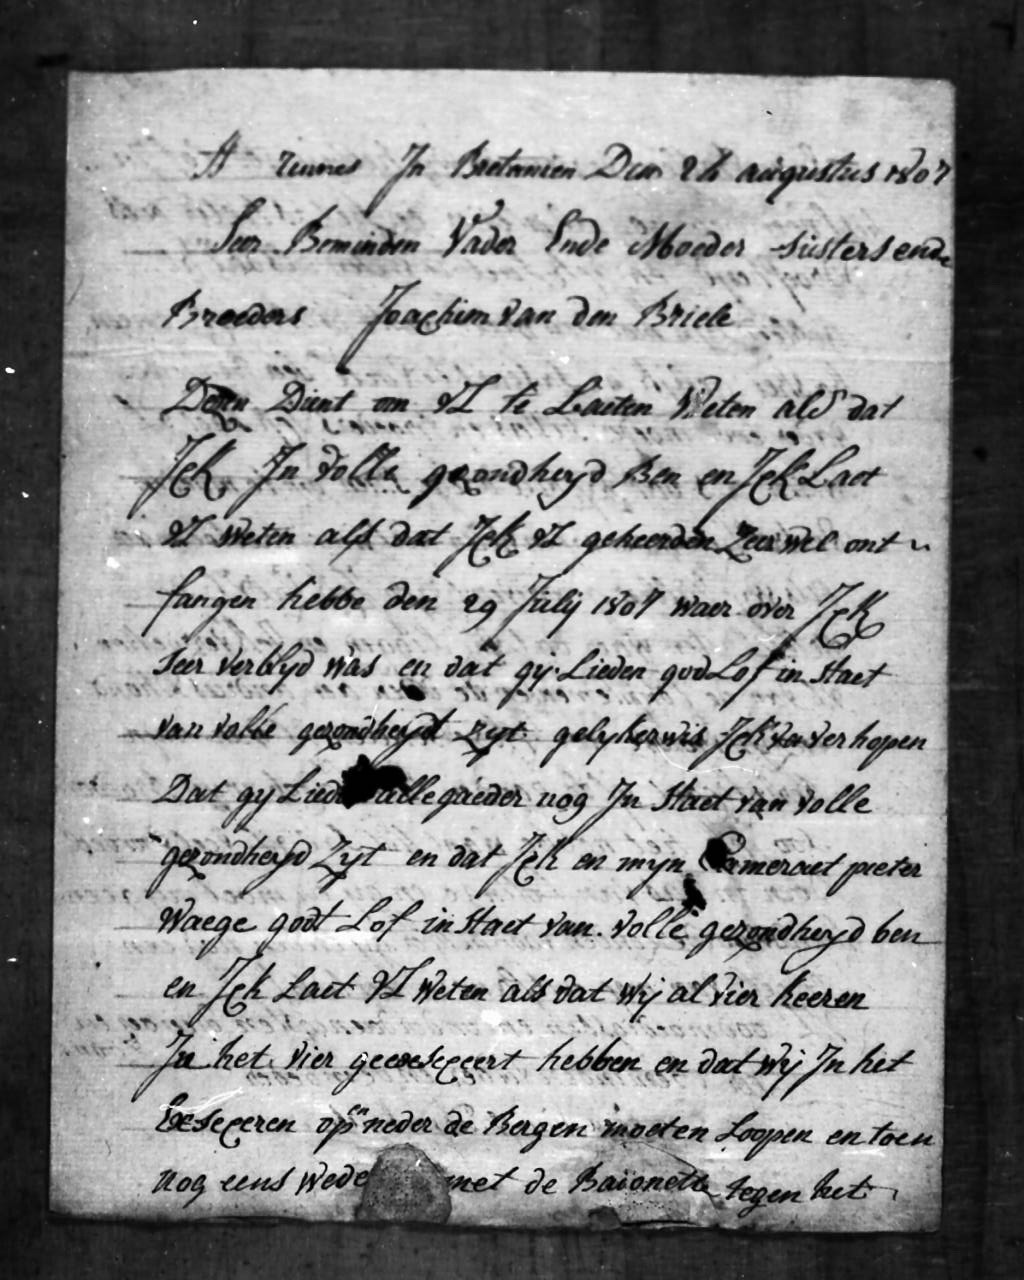 A rennes In Bretanien Den 28 augustus 1807
Seer Beminden Vader Ende Moeder susters ende
Broeders Joachim van den Briele
Desen Dient om Ul te Laeten Weten als dat
Ick In volle gezondheyd Ben en Ick Laet
Ul weten als dat Ick Ul geheerden Zeer wel ont
fangen hebbe den 29 July 1807 waer over Ick
seer verblyd was en dat gy Lieden god Lof in staet
van volle gezondheyd zyt gelykerwis Ick va verhopen
Dat gy Liede allegaeder nog In staet van volle
gezondheyd Zyt en dat Ick en myn Cameraet pieter
Waege godt Lof in staet van volle gezondheyd ben
en Ick Laet Ul Weten als dat Wij al vier keeren
In het vier geexeseceert hebben en dat wij In het
Exeseceren op en neder de Bergen moeten Loopen en toen
nog eens wede met de Baionette tegen het